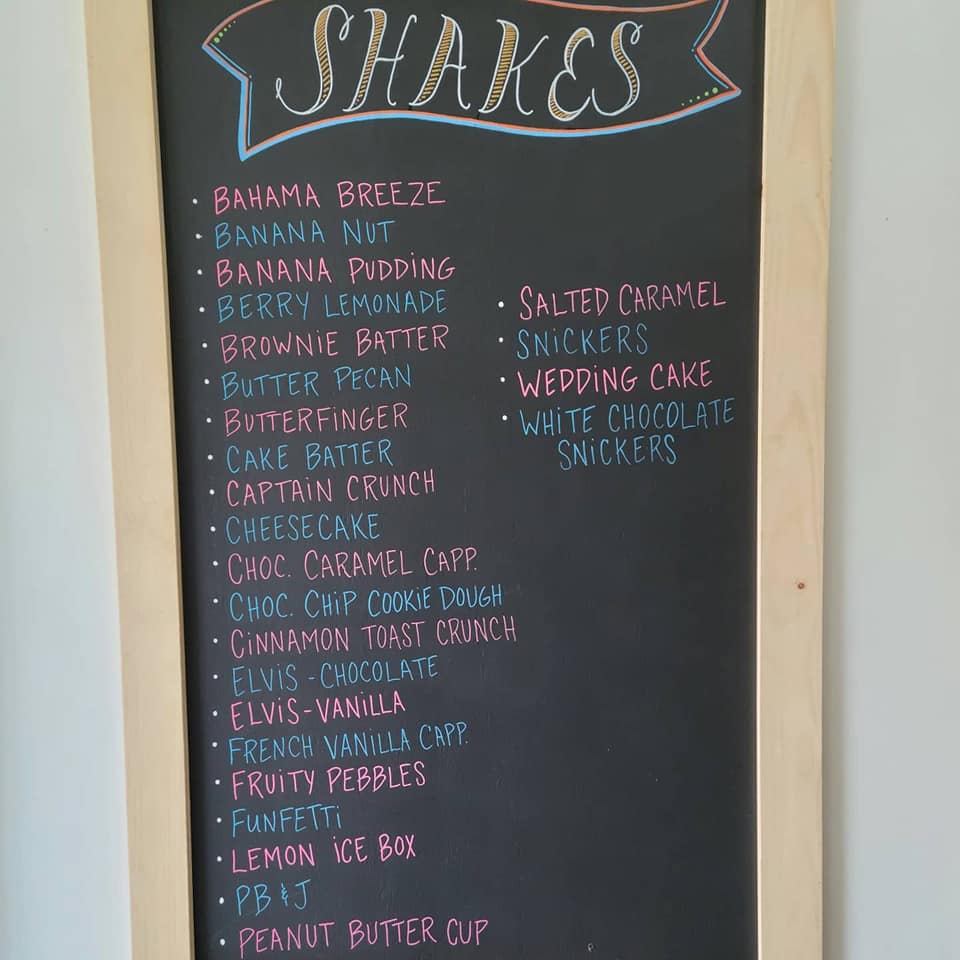 SHAKES
• BAHAMA BREEZE
• BANANA NUT
• BANANA PUDDING
• BERRY LEMONADE
• BROWNIE BATTER
• BUTTER PECAN
• BUTTERFINGER
• CAKE BATTER
• CAPTAIN CRUNCH
• CHEESECAKE
• CHOC. CARAMEL CAPP.
• CHOC. CHIP COOKIE DOUGH
• CINNAMON TOAST CRUNCH
• ELVIS - CHOCOLATE
• ELVIS - VANILLA
• FRENCH VANILLA CAPP.
• FRUITY PEBBLES
• FUNFETTI
• LEMON ICE BOX
• PB & J
• PEANUT BUTTER CUP
• SALTED CARAMEL
• SNICKERS
• WEDDING CAKE
• WHITE CHOCOLATE
SNICKERS